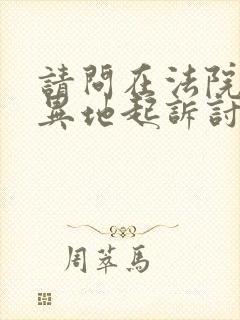 請問在法院
異地起訴討
周萃馬